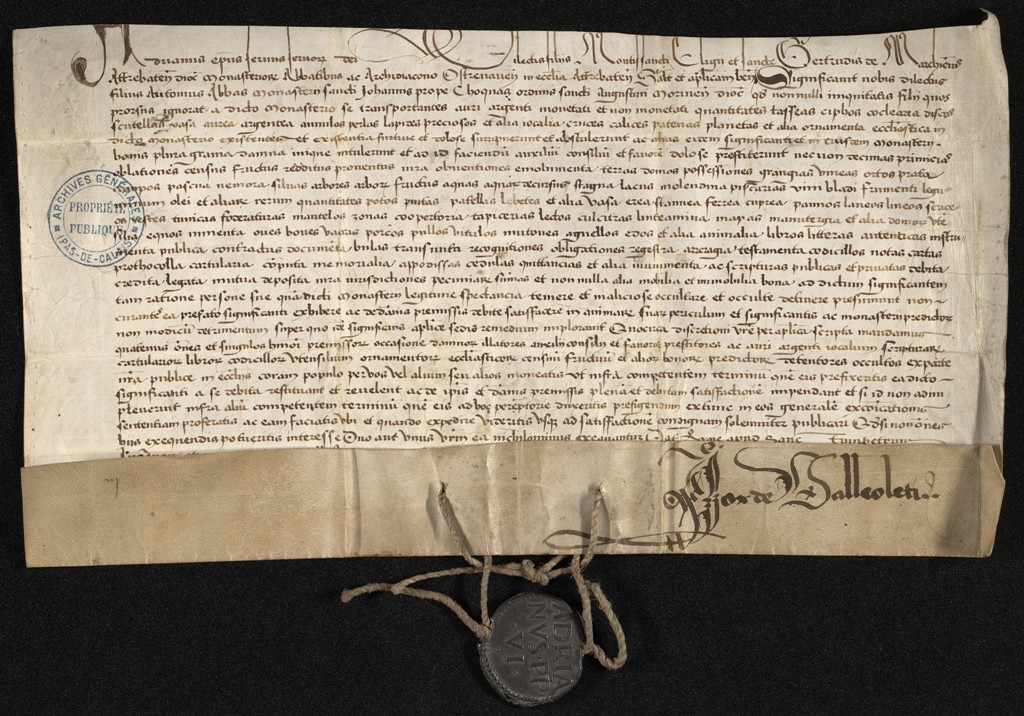 Adrianus epus servus servor dei Dilectis filiis Montis sancti Eligii et sancte Gertrudis de
Attrebaten dioc monasteriorum Abbatibus ac Archidiacono Ostrenaven in ecclia Attrebaten Salt et aplicam ben Significavit nobis dilectus
filius Antonius Abbas Monasterii sancti Johannis prope Choquas ordinis sancti Augustini Morinen dioc qd nonnulli iniquitatis filii quos
prorsus ignorat a dicto Monasterio se transportantes auri argenti monetati et non monetati quantitates tasseas ciphos coclearia discos
scutellas vasa aurea argentea annulos perlas lapides preciosos et alia iocalia cruces calices patenas planetas et alia ornamenta ecclesiastica in
dicto monasterio existentes et existentia furtive et dolose surripuerunt et abstulerunt ac alias eidem significanti et in eiusdem monasterii
bonis plura gravia damna inique intulerunt et ad id faciendum auxilium consilium et favorem dolose prestiterunt nec non decimas primicias
oblationes census fructus redditus proventus iura obventiones emolimenta terras domos possessiones grangias vineas ortos prata
campos pascua nemora silvas arbores arbor fructus aquas aquar decursus stagna lacus molendina piscarias vini bladi frumenti
olei et aliar rerum quantitates potos pintas patellas lebetes et alia vasa erea stannea ferrea cuprea pannos laneos lineos
vestes tunicas foderaturas mantelos zonas coopertoria tapicerias lectos culcitras linteamina mapas manutergia et alia domor
equos iumenta oves boves vacas porcos pullos vitulos mutones agnellos edos et alia animalia libros litteras autenticas
publica contractus documeta bulas transumta recognitiones obligationes regestra testamenta codicillos notas cartas
prothocolla cartularia computa memorialia appodissas cedulas quittancias et alia munimenta ac scripturas publicas et privatas debita
credita legata mutua deposita iura iurisdictiones pecuniar summas et nonnulla alia mobilia et immobilia bona ad dictum significantem
tam ratione persone sue quam dicti Monasterii legitime spectancia temere et maliciose occultare et occulte detinere presumunt non
curantes ea prefato significanti exhibere ac de damnis premissis debite satisfacere in animar suar periculum et significantis ac monasterii predictor
non modicum detrimentum super quo idem significans aplice sedis remedium imploravit Quocirca discretioni vre per aplica scripta mandamus
quatenus omnes et singulos hmoi premissor occasione damnor illatores auxilii consilii et favoris prestitores ac auri argenti iocalium scripturar
cartularior libror codicillor utensilium ornamentor ecclasticor censuum fructuum et alior bonor predictor detentores occultos ex parte
nra publice in ecclis coram populo per vos vel alium seu alios moneatis ut infra competentem terminum quem eis prefixeritis ea dicto
significanti a se debita restituant et revelent ac de ipsis et damnis premissis plenam et debitam satisfactionem impendant et si id non adim
pleverint infra alium competentem terminum quem eis ad hoc peremptorie duxeritis prefigendum extunc in eos generale excoicationis
sententiam proferatis ac eam faciatis ubi et quando expedire videritis usq ad satisfactionem condignam solemniter publicari Qdsi non omnes
hiis exequendis potueritis interesse Duo aut unus vrm ea nichilominus exequantur Dat Rome apud Sanc
Jo de Valleoleti
ARCHIVES GÉNÉRALES
PROPRIÉTÉ
PUBLIQUE
PAS-DE-CALAIS
ADRIA
NVS·PP
·VI·